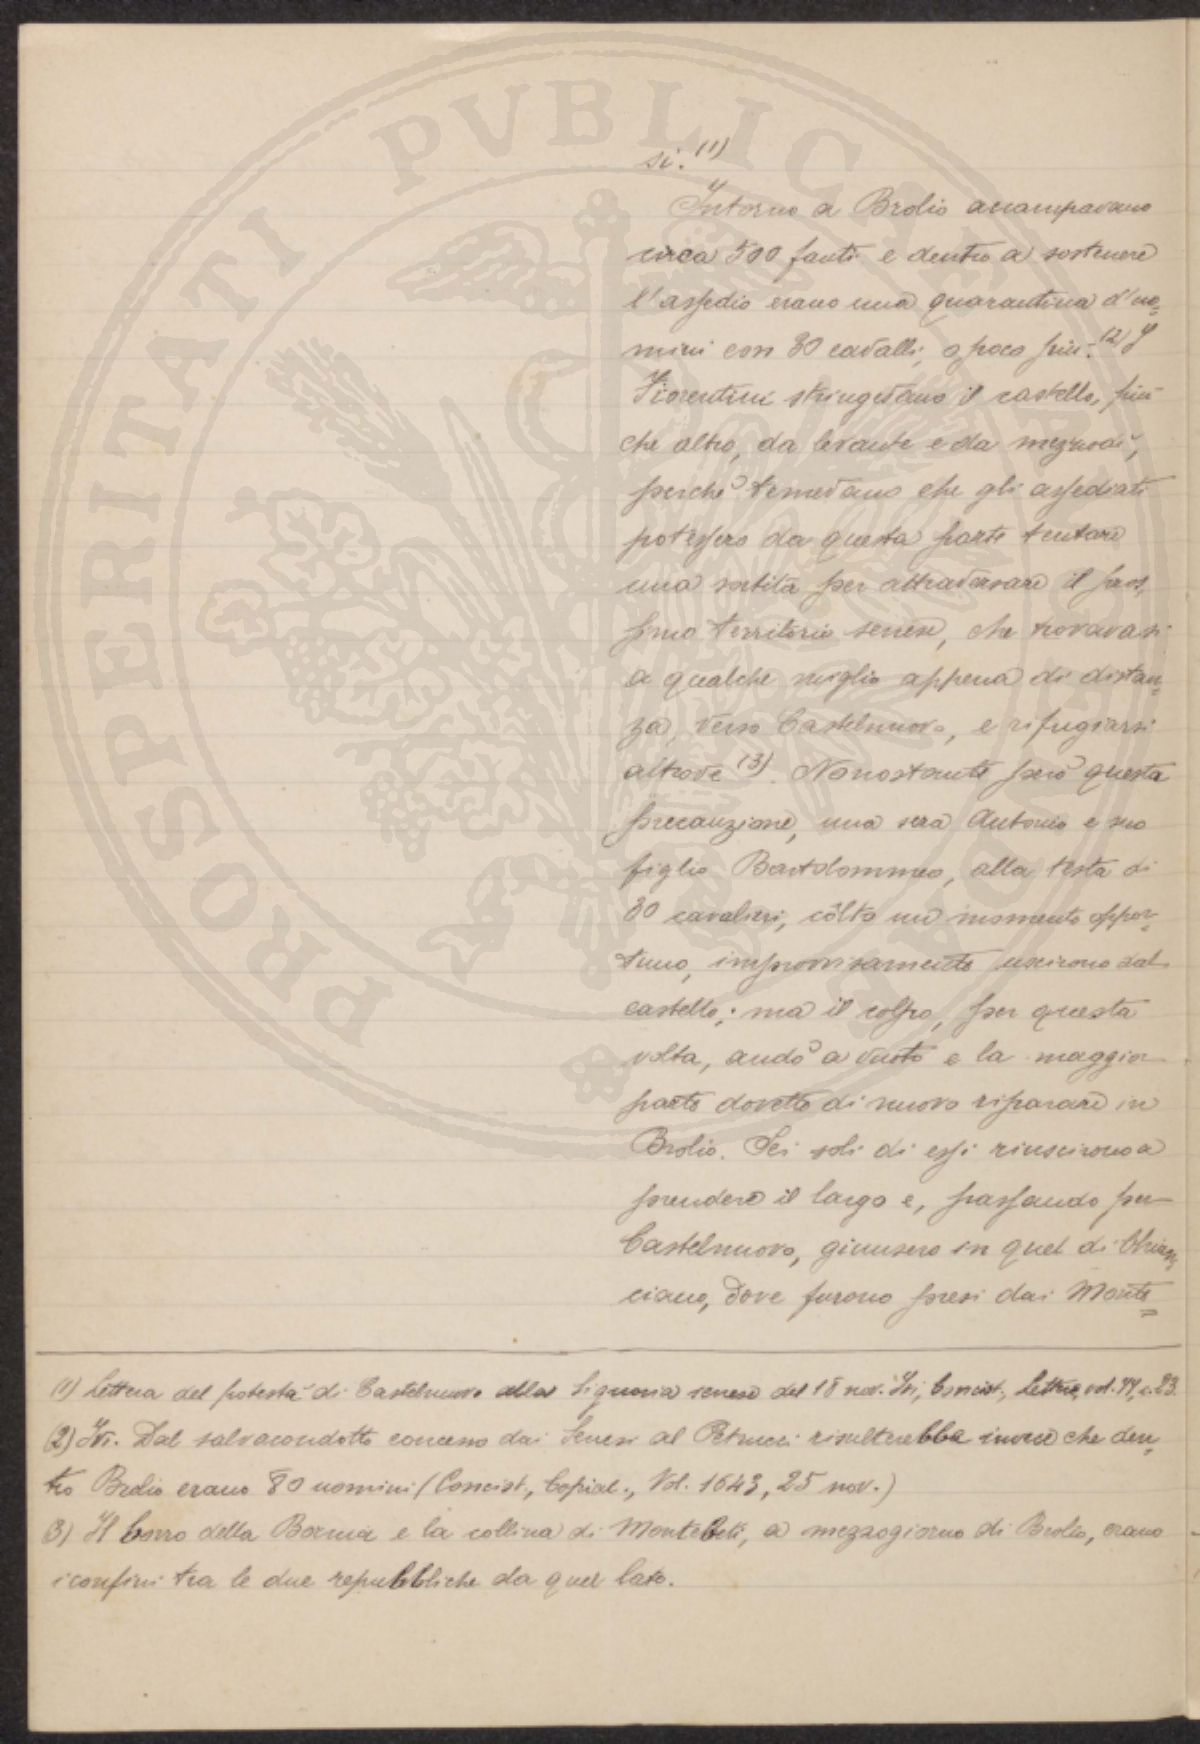 si. (1)
Intorno a Brolio accampavano
circa 500 fanti e dentro a sostenere
l'assedio erano una quarantina d'uo=
mini con 30 cavalli, o poco più. (2) I
Fiorentini stringevano il castello, più
che altro, da levante e da mezzodì,
perché temevano che gli assediati
potessero da questa parte tentare
una sortita per attraversare il pros=
simo territorio senese, che trovavasi
a qualche miglio appena di distan=
za, verso Castelnuovo, e rifugiarsi
altrove (3). Nonostante però questa
precauzione, una sera Antonio e suo
figlio Bartolommeo, alla testa di
30 cavalieri, còlto un momento oppor=
tuno, improvvisamente uscirono dal
castello; ma il colpo, per questa
volta, andò a vuoto e la maggior
parte dovette di nuovo riparare in
Brolio. Sei soli di essi riuscirono a
prendere il largo e, passando per
Castelnuovo, giunsero in quel di Chian=
ciano, dove furono presi dai Monte=
(1) Lettera del potestà di Castelnuovo alla Signoria senese del 18 nov. Ivi, Concist., Lettere, vol. 77, c. 23.
(2) Ivi. Dal salvacondotto concesso dai Senesi al Petrucci risulterebbe invece che den=
tro Brolio erano 80 uomini (Concist., Copial., Vol. 1643, 25 nov.)
(3) Il borro della Bornia e la collina di Montebeli, a mezzogiorno di Brolio, erano
i confini tra le due repubbliche da quel lato.
PROSPERITATI PVBLICAE